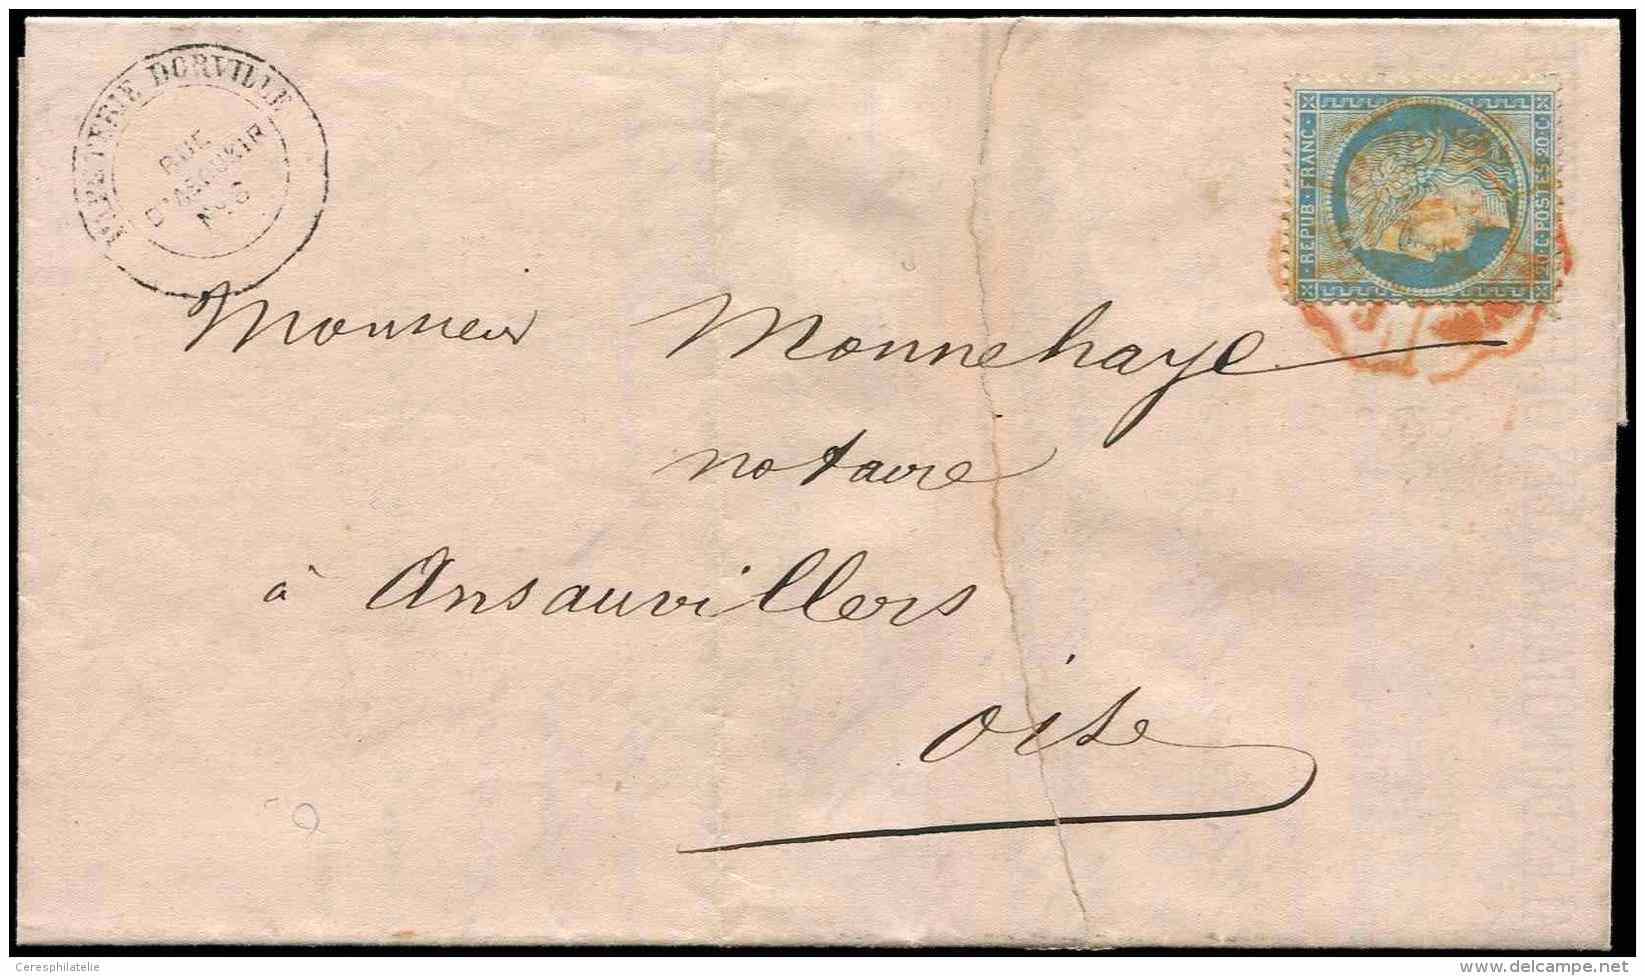 PAPETERIE DORVILLE
RUE
D'ABOUKIR
No 6
REPUB · FRANC ·
20 · C · POSTES · 20 · C
Monsieur Monnehaye
notaire
à Ansauvillers
Oise
Ceresphilatelie
delcampe.net